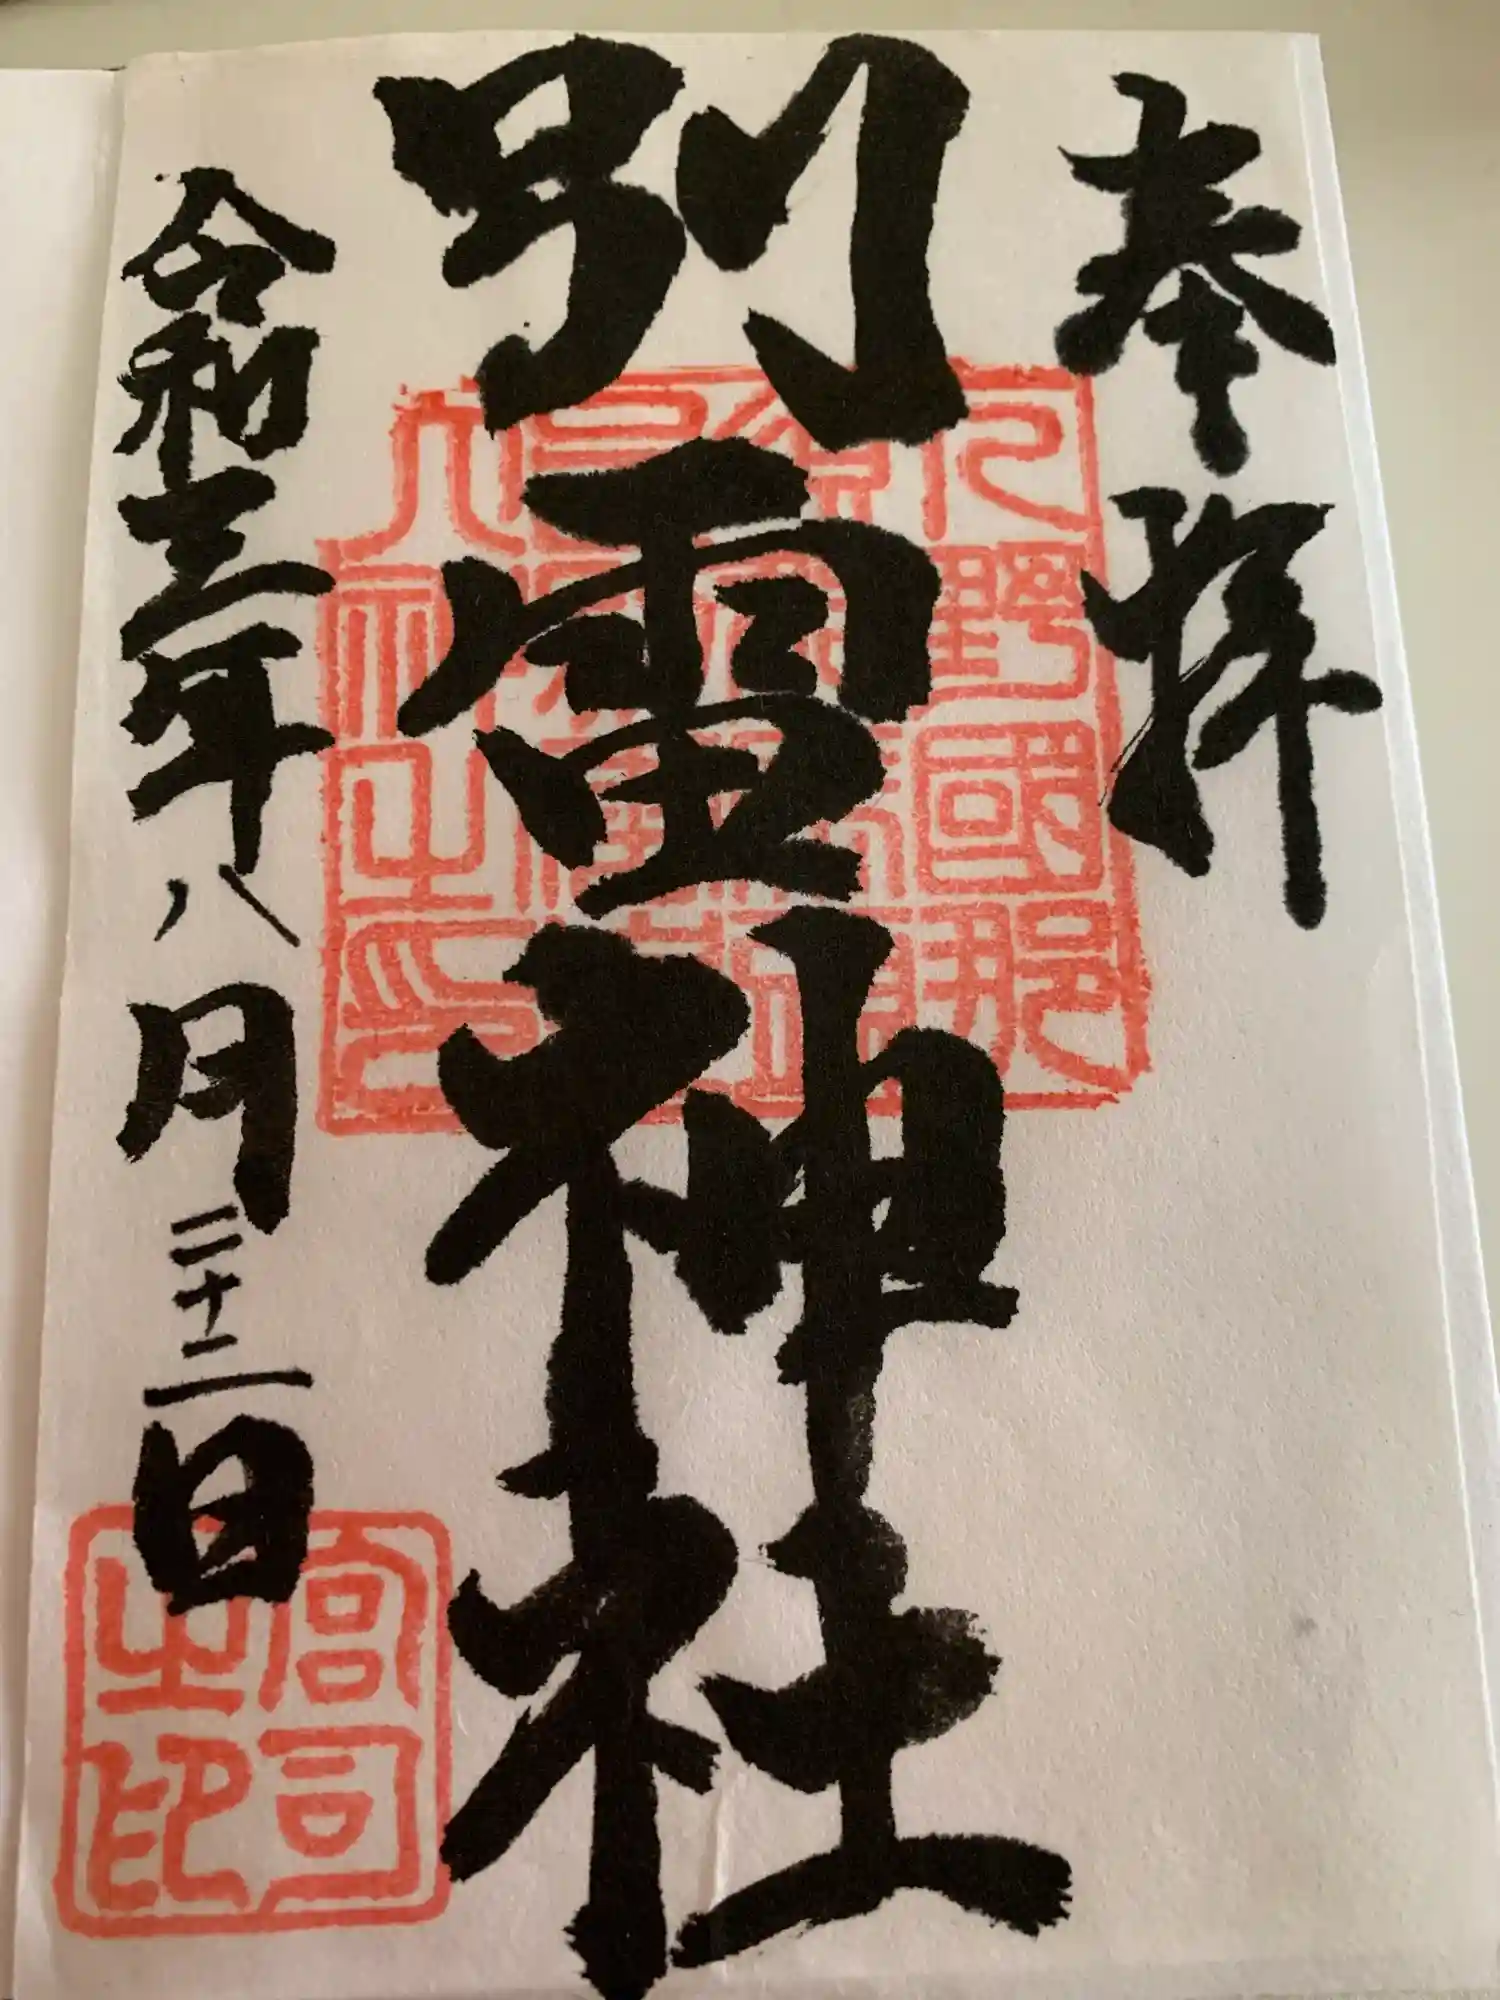 奉拝
別雷神社
令和三年八月二十二日
宮司
之印